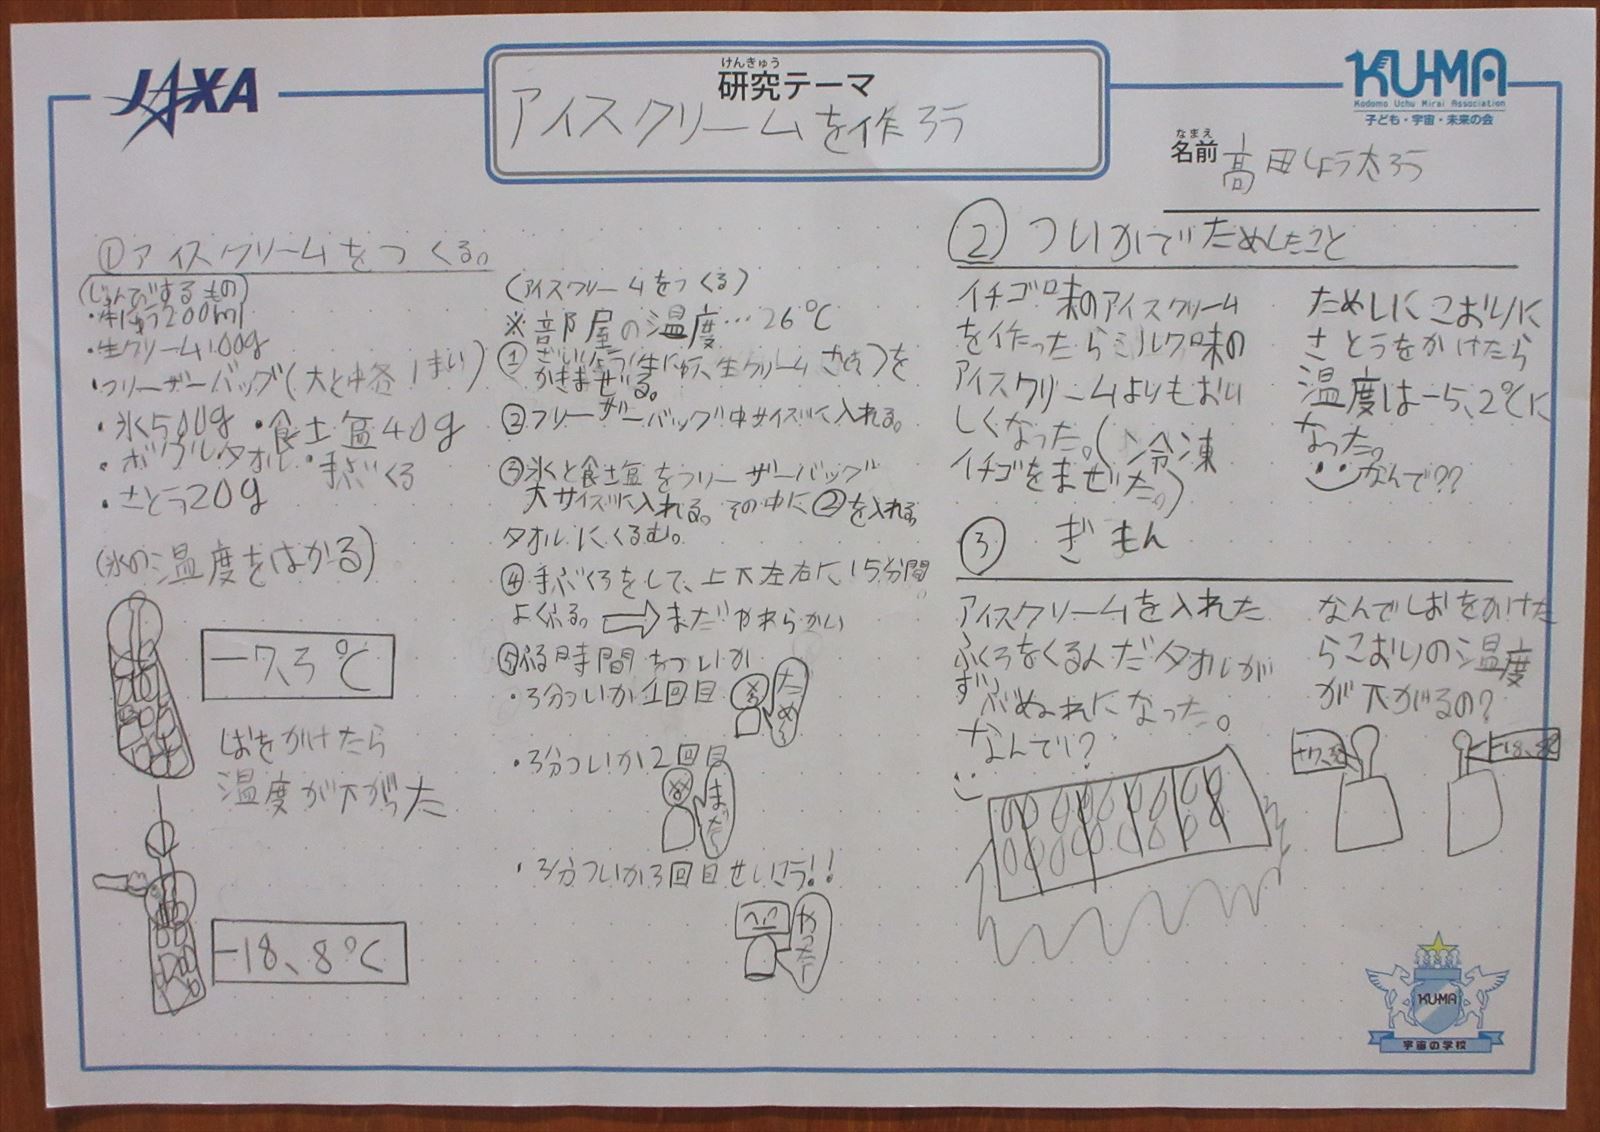 JAXA
けんきゅう
研究テーマ
アイスクリームを作ろう
KU-MA
Kodomo Uchu Mirai Association
子ども・宇宙・未来の会
なまえ
名前
高田しょう太ろう
①アイスクリームをつくる。
(じゅんびするもの)
・牛にゅう200ml
・生クリーム100g
・フリーザーバッグ(大と中各1まい)
・氷500g ・食土塩40g
・ボウル タオル・手ぶくろ
・さとう20g
(氷の温度をはかる)
-7、3℃
しおをかけたら
温度が下がった
-18、8℃
(アイスクリームをつくる)
※部屋の温度…26℃
①ざいりょう(牛にゅう、生クリーム さとう)を
かきまぜる。
②フリーザーバッグ中サイズに入れる。
③氷と食土塩をフリーザーバッグ
大サイズに入れる。その中に②を入れる。
タオルにくるむ。
④手ぶくろをして、上下左右に、15分間。
よくふる。⇨まだやわらかい
⑤ふる時間をついか
・3分ついか1回目
だめだ
・3分ついか2回目
まだだ
・3分ついか3回目せいこう!!
やったー
②ついかでためしたこと
イチゴ味のアイスクリーム
を作ったらミルク味の
アイスクリームよりもおい
しくなった。(冷凍
イチゴをまぜた。)
ためしにこおりに
さとうをかけたら
温度は-5、2℃に
なった。
なんで??
③ ぎもん
アイスクリームを入れた
ふくろをくるんだタオルが
ずぶぬれになった。
なんで!?
なんでしおをかけた
らこおりの温度
が下がるの?
KU-MA
宇宙の学校